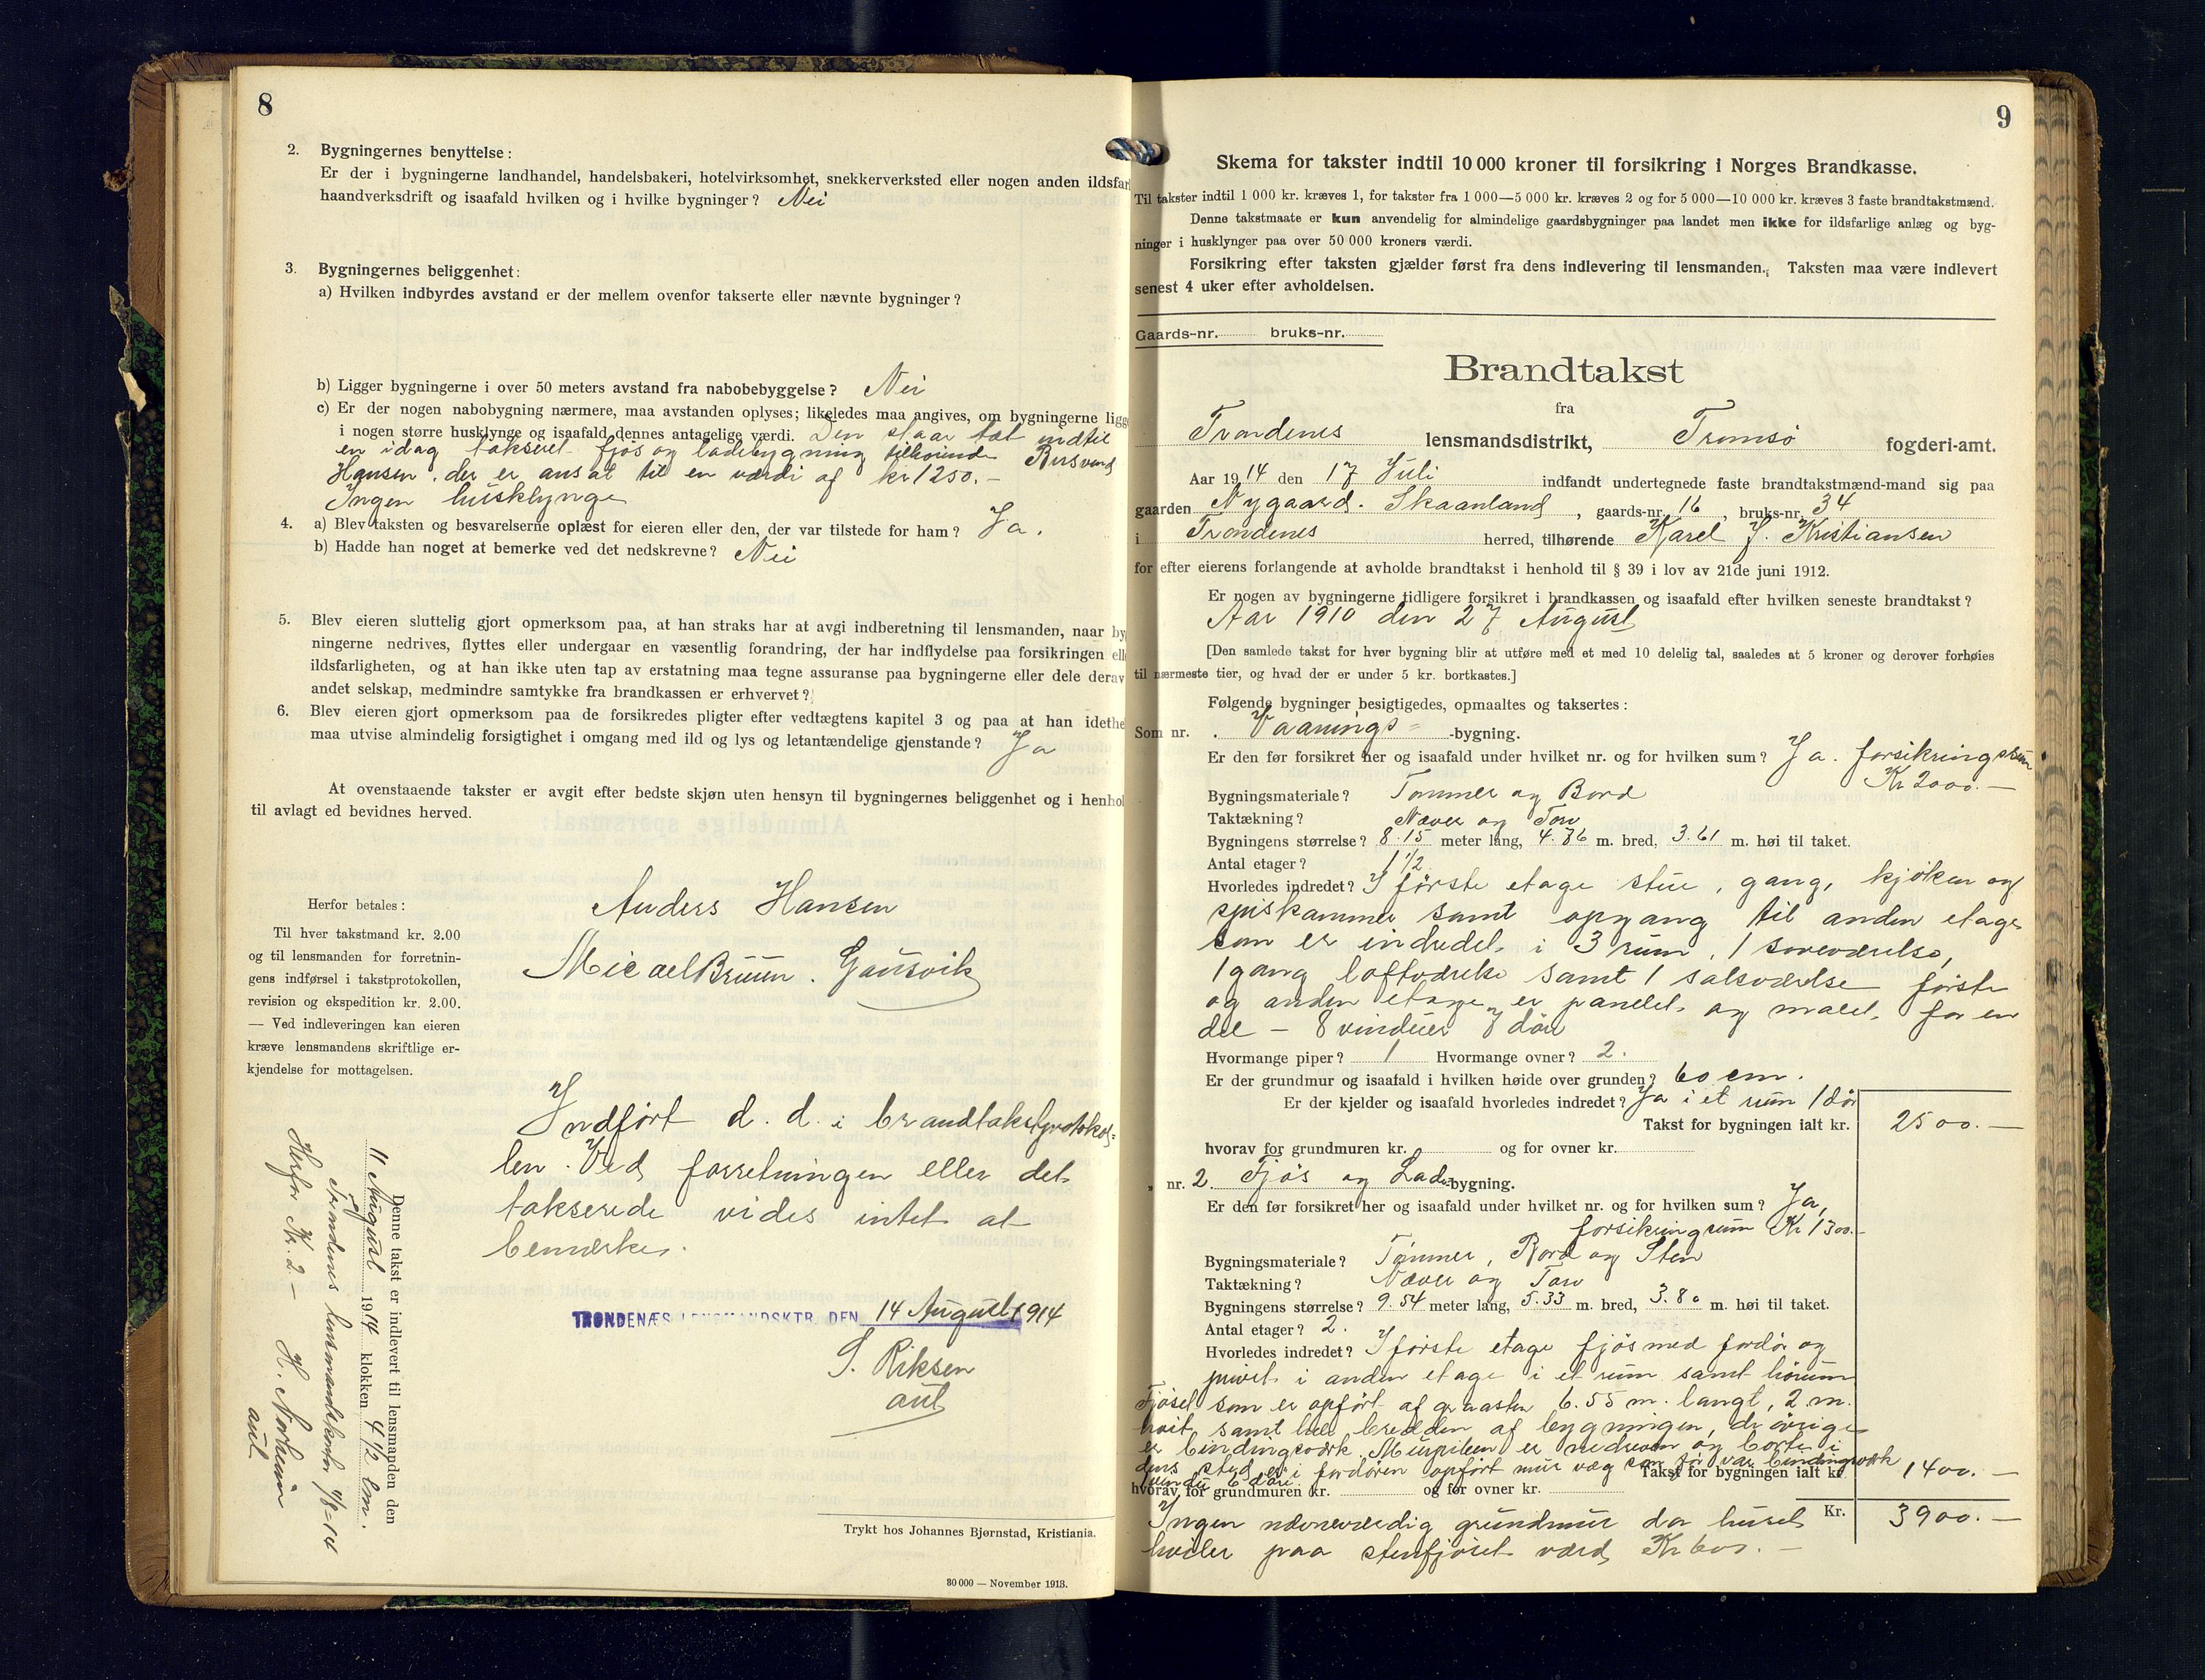 8
2. Bygningernes benyttelse:
Er der i bygningerne landhandel, handelsbakeri, hotelvirksomhet, snekkerverksted eller nogen anden ildsfar
haandverksdrift og isaafald hvilken og i hvilke bygninger? Nei
3. Bygningernes beliggenhet:
a) Hvilken indbyrdes avstand er der mellem ovenfor takserte eller nævnte bygninger?
b) Ligger bygningerne i over 50 meters avstand fra nabobebyggelse? Nei
c) Er der nogen nabobygning nærmere, maa avstanden oplyses; likeledes maa angives, om bygningerne ligg
i nogen større husklynge og isaafald dennes antagelige værdi. Den staar tæt indtil
en idag takseret fjös og ladebygning tilhörende
Hansen, der er ansat til en værdi af kr 1250.-
Ingen husklynge
4. a) Blev taksten og besvarelserne oplæst for eieren eller den, der var tilstede for ham? Ja.
b) Hadde han noget at bemerke ved det nedskrevne? Nei
5. Blev eieren sluttelig gjort opmerksom paa, at han straks har at avgi indberetning til lensmanden, naar by
ningerne nedrives, flyttes eller undergaar en væsentlig forandring, der har indflydelse paa forsikringen ell
ildsfarligheten, og at han ikke uten tap av erstatning maa tegne assuranse paa bygningerne eller dele derav
andet selskap, medmindre samtykke fra brandkassen er erhvervet?
6. Blev eieren gjort opmerksom paa de forsikredes pligter efter vedtægtens kapitel 3 og paa at han idethe
maa utvise almindelig forsigtighet i omgang med ild og lys og letantændelige gjenstande? Ja
At ovenstaaende takster er avgit efter bedste skjøn uten hensyn til bygningernes beliggenhet og i henhol
til avlagt ed bevidnes herved.
Anders Hansen
Micael Bruun. Gausvik
Herfor betales:
Til hver takstmand kr. 2.00
og til lensmanden for forretnin-
gens indførsel i takstprotokollen,
revision og ekspedition kr. 2.00.
— Ved indleveringen kan eieren
kræve lensmandens skriftlige er-
kjendelse for mottagelsen.
Indfört d. d. i brandtakstprotokol=
len. Ved forretningen eller det
takserede vides intet at
bemærke.
TRONDENÆS LENSMANDSKTR. DEN 14 August 1914
S. Riksen
aut
Denne takst er indlevert til lensmanden den
11 August 1914 klokken 4 1/2 em.
Trondenes lensmandskontor 11/8-14
Herfor Kr. 2.- H. Norheim
aut
Trykt hos Johannes Bjørnstad, Kristiania.
30 000 — November 1913.
9
Skema for takster indtil 10 000 kroner til forsikring i Norges Brandkasse.
Til takster indtil 1 000 kr. kræves 1, for takster fra 1 000—5 000 kr. kræves 2 og for 5 000—10 000 kr. kræves 3 faste brandtakstmænd.
Denne takstmaate er kun anvendelig for almindelige gaardsbygninger paa landet men ikke for ildsfarlige anlæg og byg-
ninger i husklynger paa over 50 000 kroners værdi.
Forsikring efter taksten gjælder først fra dens indlevering til lensmanden. Taksten maa være indlevert
senest 4 uker efter avholdelsen.
Gaards-nr. bruks-nr.
Brandtakst
fra
Trondenes lensmandsdistrikt, Tromsö fogderi-amt.
Aar 1914 den 17 Juli indfandt undertegnede faste brandtakstmænd-mand sig paa
gaarden Nygaard. Skaanland, gaards-nr. 16, bruks-nr. 34
i Trondenes herred, tilhørende Karel J. Kristiansen
for efter eierens forlangende at avholde brandtakst i henhold til § 39 i lov av 21de juni 1912.
Er nogen av bygningerne tidligere forsikret i brandkassen og isaafald efter hvilken seneste brandtakst?
Aar 1910 den 27 August
[Den samlede takst for hver bygning blir at utføre med et med 10 delelig tal, saaledes at 5 kroner og derover forhøies
til nærmeste tier, og hvad der er under 5 kr. bortkastes.]
Følgende bygninger besigtigedes, opmaaltes og taksertes:
Som nr. . Vaanings= -bygning.
Er den før forsikret her og isaafald under hvilket nr. og for hvilken sum? Ja. forsikringssum
Kr 2000.-
Bygningsmateriale? Tømmer og Bord
Taktækning? Næver og Torv
Bygningens størrelse? 8.15 meter lang, 4.76 m. bred, 3.61 m. høi til taket.
Antal etager? 1 1/2.
Hvorledes indredet? I förste etage stue, gang, kjöken og
spiskammer samt opgang til anden etage
som er indredet i 3 rum, 1 soveværelse,
1 gang loftværelse samt 1 salsværelse förste
og anden etage er panelet og malet for en
del - 8 vinduer 7 dör
Hvormange piper? 1 Hvormange ovner? 2.
Er der grundmur og isaafald i hvilken høide over grunden? 60 cm.
Er der kjelder og isaafald hvorledes indredet? Ja i et rum 1 dör
Takst for bygningen ialt kr. 2500.-
hvorav for grundmuren kr. og for ovner kr.
" nr. 2. Fjös og Lade-bygning.
Er den før forsikret her og isaafald under hvilket nr. og for hvilken sum? Ja,
forsikringsum Kr 1300.-
Bygningsmateriale? Tømmer, Bord og Sten
Taktækning? Næver og Torv
Bygningens størrelse? 9.54 meter lang, 5.33 m. bred, 3.80 m. høi til taket.
Antal etager? 2.
Hvorledes indredet? I förste etage fjös med fordör og
privet i anden etage i et rum samt hörum
Fjöset som er opfört af graasten 6.55 m. langt, 2 m.
höit samt hele bredden af bygningen, de övrige
er bindingsværk. Murpiben er nedreven og borte i
dens sted er i fordören opfört mur væg som för var bindingsværk
vindu 6 döre Takst for bygningen ialt kr. 1400.-
hvorav for grundmuren kr. og for ovner kr.
Ingen nævneværdig grundmur da huset Kr. 3900.-
hviler paa stenfjöset værd Kr 600.-